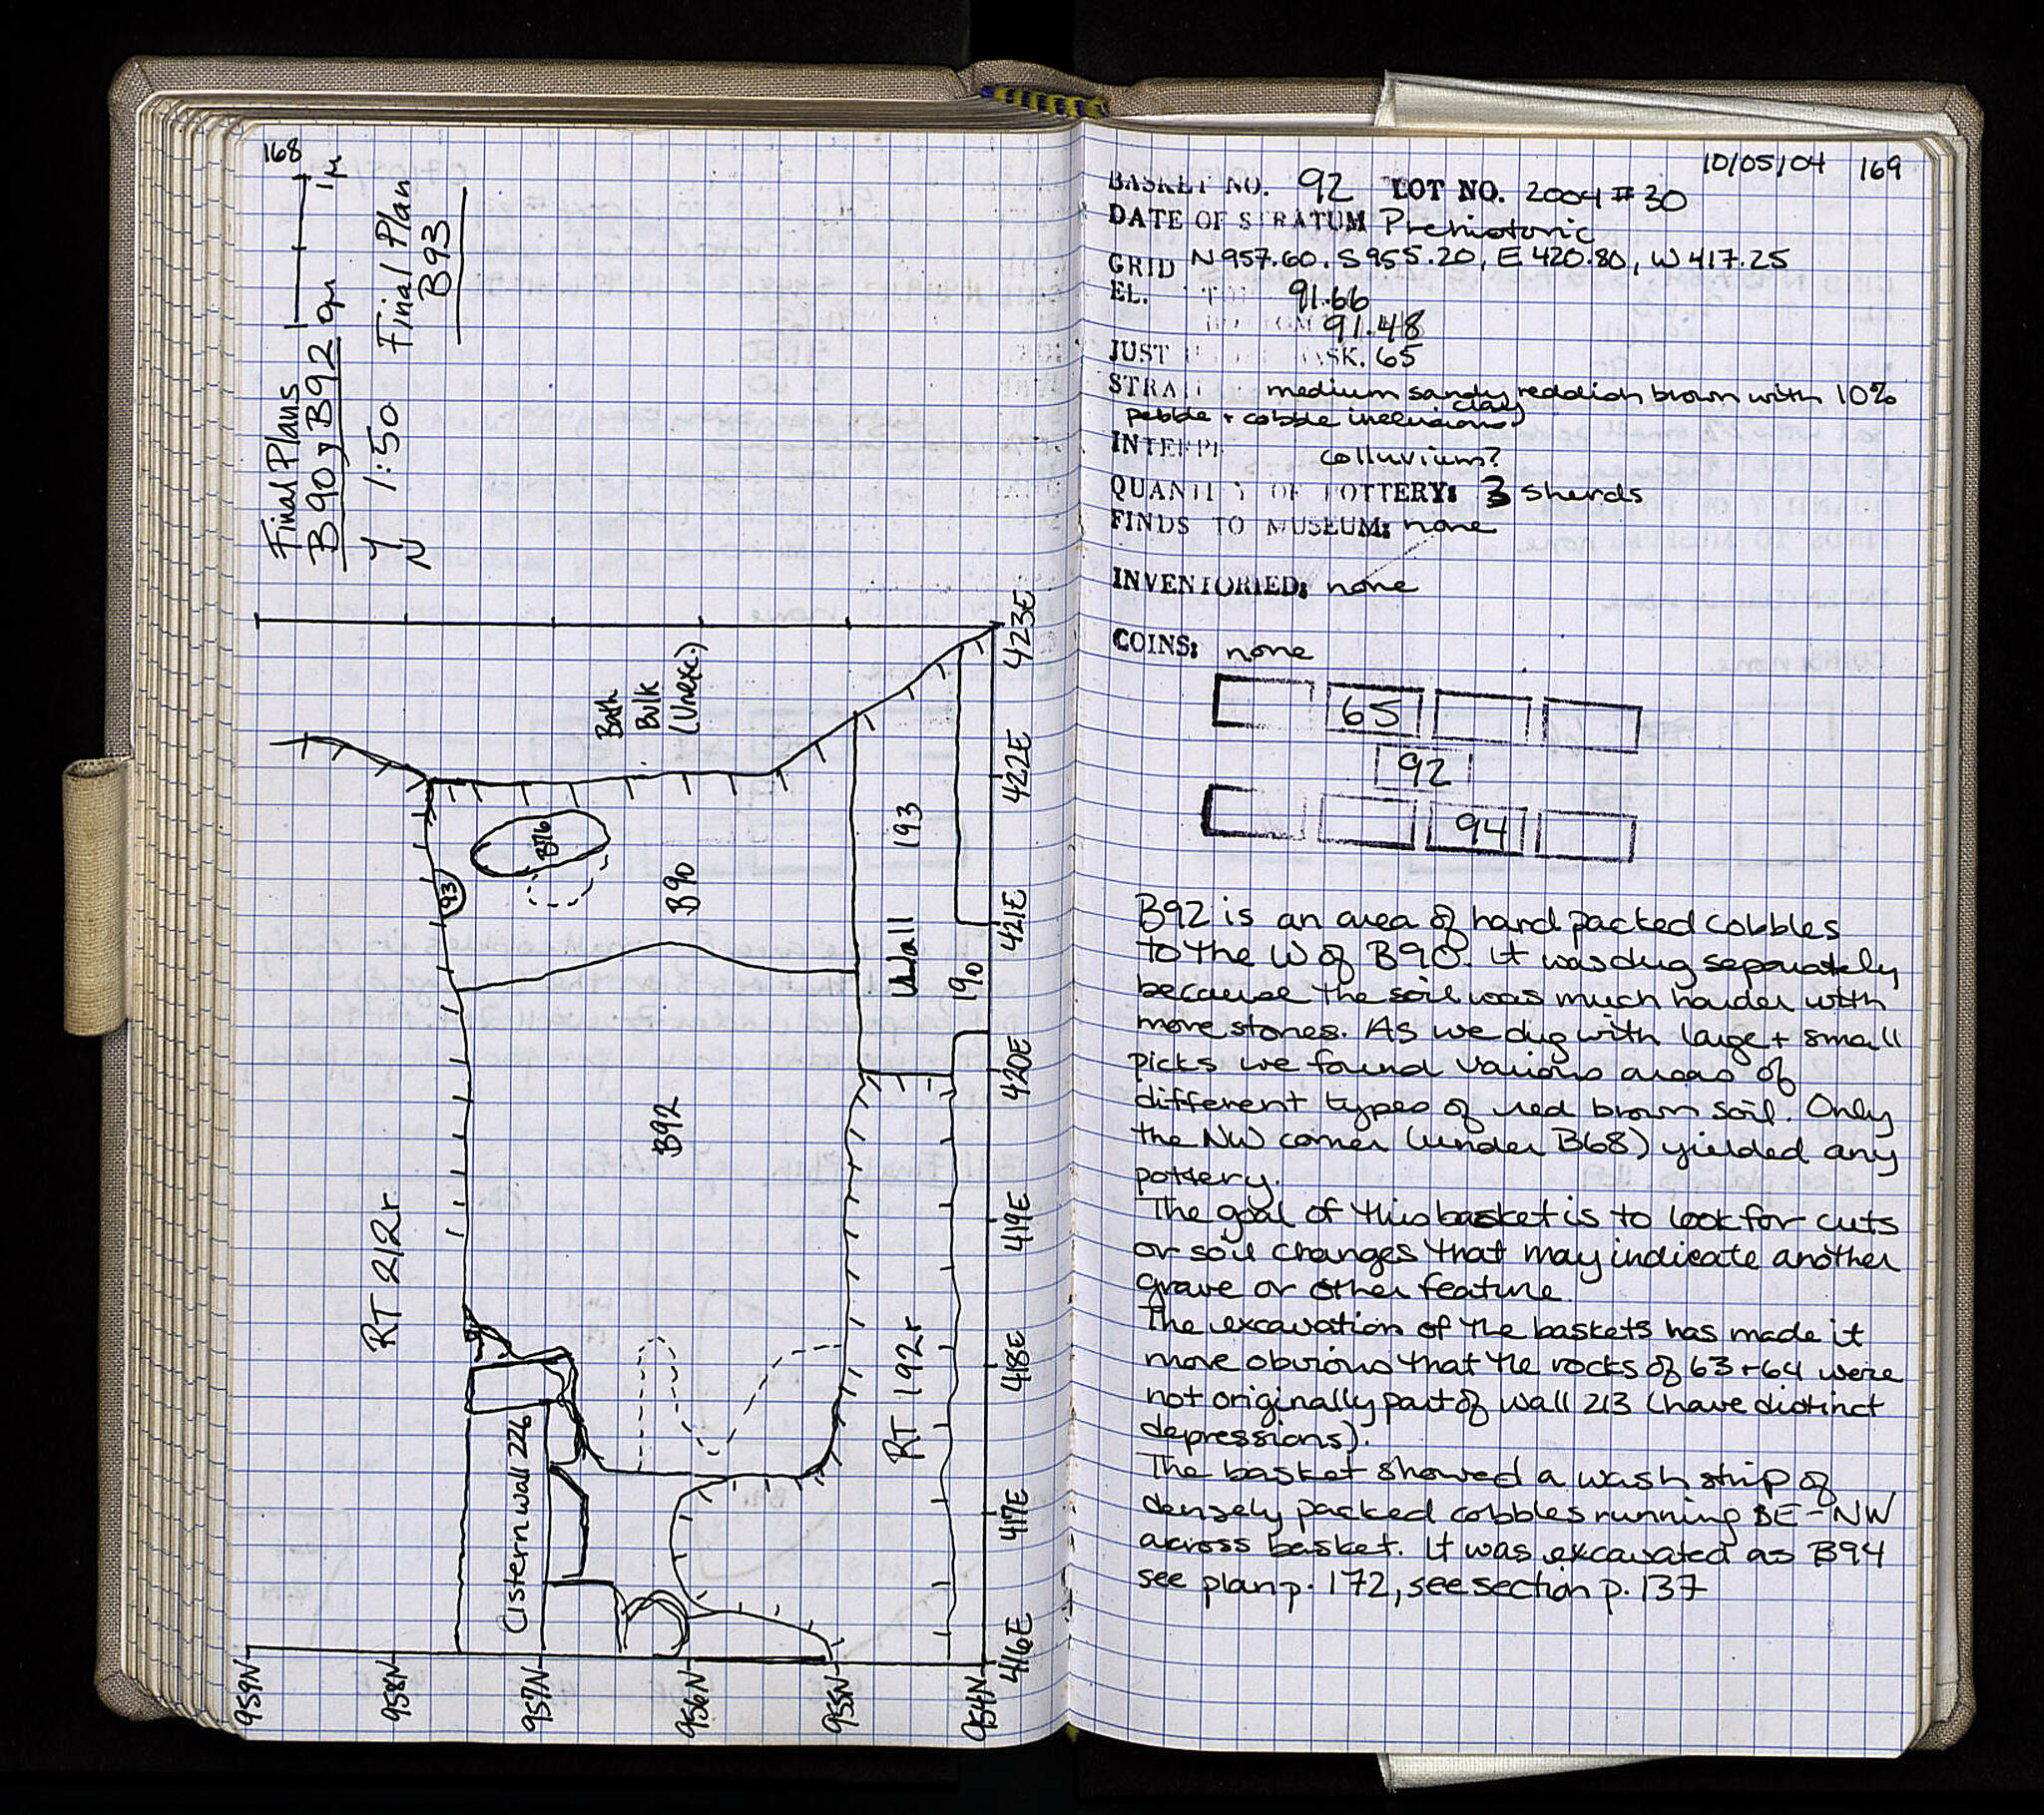 168
0m 1m
Final Plans
B90 y B92
1:50
N
Final Plan
B93
423E
422E
421E
420E
419E
418E
417E
416E
959N
958N
957N
956N
955N
954N
Bath
Bulk
(Unexc.)
B76
93
B90
Wall 193
190
B92
RT 212r
RT 192r
Cistern wall 226
10/05/04 169
BASKET NO. 92 LOT NO. 2004 #30
DATE OF STRATUM Prehistoric
GRID N957.60, S955.20, E420.80, W417.25
EL. TOP 91.66
BOTTOM 91.48
JUST BASK. 65
STRAT medium sandy clay reddish brown with 10%
pebble + cobble inclusions
INTERPR colluvium?
QUANTITY OF POTTERY: 3 sherds
FINDS TO MUSEUM: none
INVENTORIED: none
COINS: none
65
92
94
B92 is an area of hard packed cobbles
to the W of B90. It was dug separately
because the soil was much harder with
more stones. As we dug with large + small
picks we found various areas of
different types of red brown soil. Only
the NW corner (under B68) yielded any
pottery.
The goal of this basket is to look for cuts
or soil changes that may indicate another
grave or other feature.
The excavation of the baskets has made it
more obvious that the rocks of 63+64 were
not originally part of wall 213 (have distinct
depressions).
The basket showed a wash strip of
densely packed cobbles running SE-NW
across basket. It was excavated as B94
see plan p. 172, see section p. 137